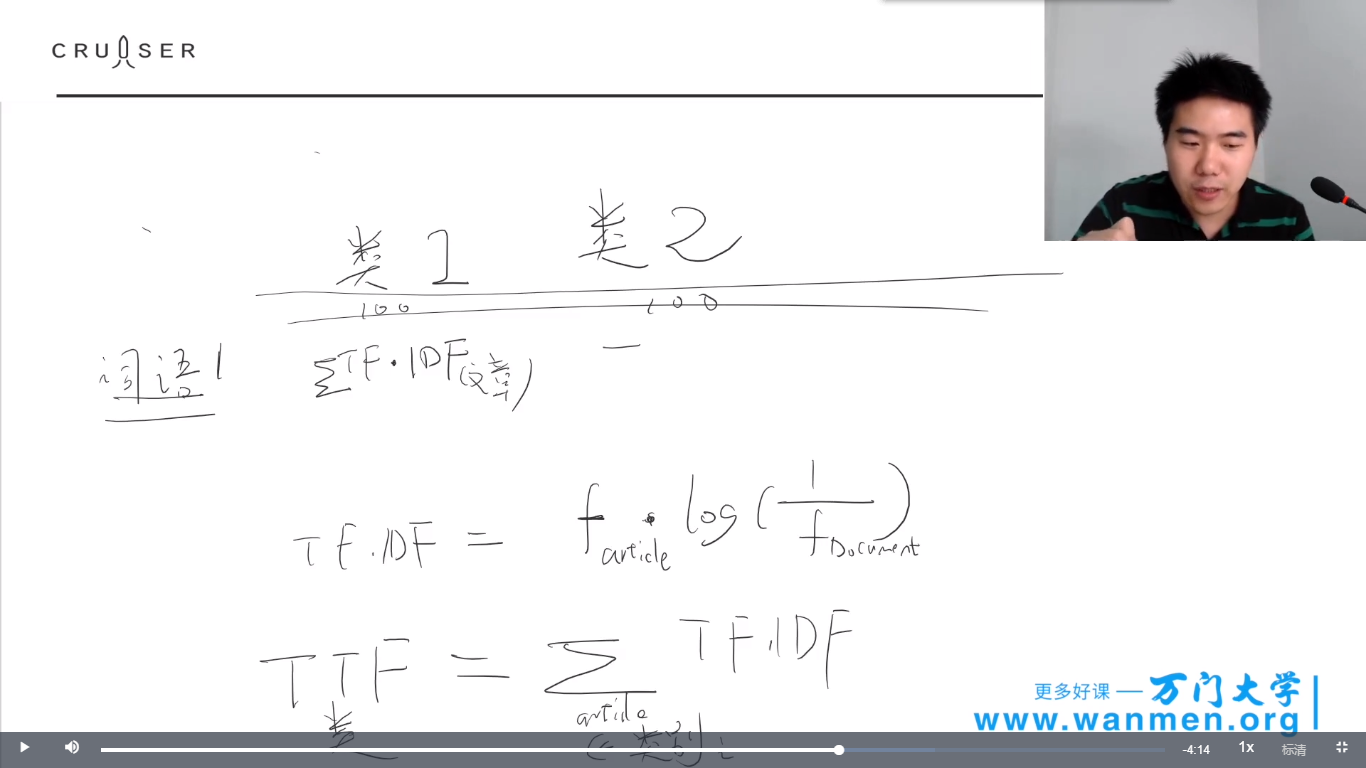 CRUISER
类1 类2
100 100
词语1 ΣTF·IDF(文章) —
TF·IDF = f article · log(1/f Document)
TTF 类 = Σ article ∈类别i TF·IDF
更多好课 — 万门大学
www.wanmen.org
-4:14 1x 标清